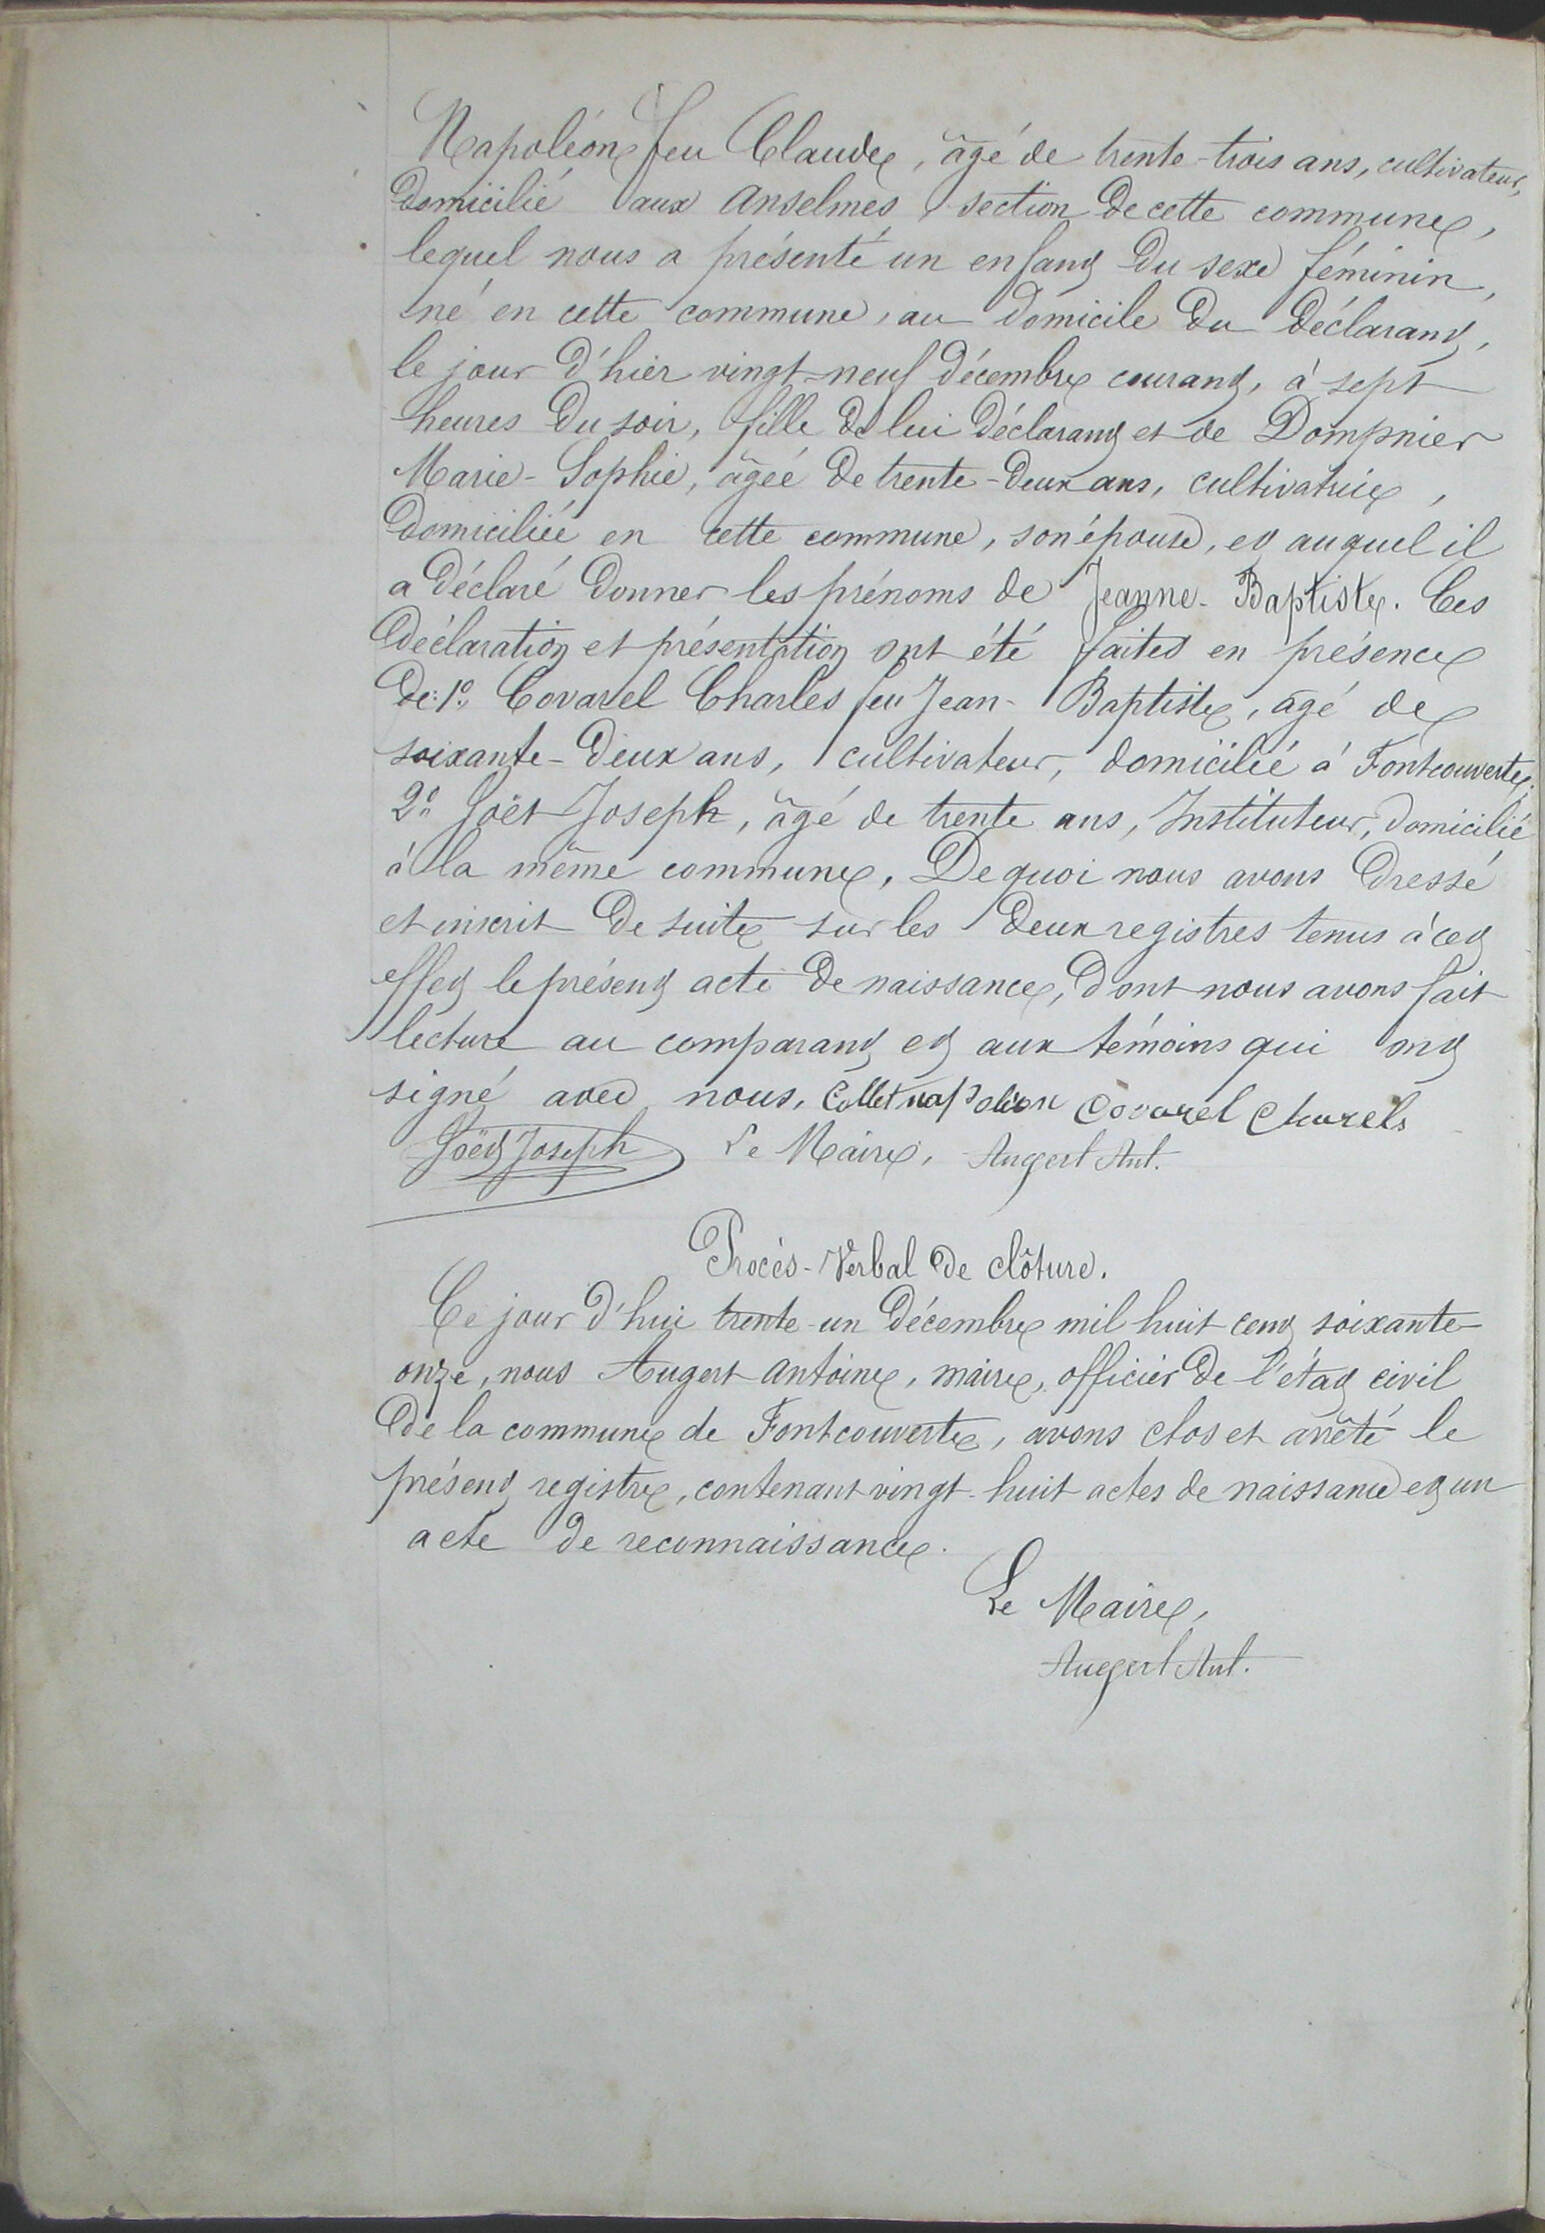 Napoléon feu Claude, âgé de trente-trois ans, cultivateur,
domicilié aux Anselmes, section de cette commune,
lequel nous a présenté un enfant du sexe féminin,
né en cette commune, au domicile du déclarant,
le jour d'hier vingt-neuf décembre courant, à sept
heures du soir, fille de lui déclarant et de Dompnier
Marie-Sophie, âgée de trente-deux ans, cultivatrice,
domiciliée en cette commune, son épouse, et auquel il
a déclaré donner les prénoms de Jeanne-Baptiste. Ces
déclaration et présentation ont été faites en présence
de: 1º Covarel Charles feu Jean-Baptiste, âgé de
soixante-deux ans, cultivateur, domicilié à Fontcouverte;
2º Joët Joseph, âgé de trente ans, Instituteur, domicilié
à la même commune, De quoi nous avons dressé
et inscrit de suite sur les deux registres tenus à cet
effet le présent acte de naissance, dont nous avons fait
lecture au comparant et aux témoins qui ont
signé avec nous. Collet napoléon Covarel Charels
Joët Joseph Le Maire, Augert Ant.
Procès-Verbal de clôture.
Ce jour d'hui trente-un décembre mil huit cent soixante-
onze, nous Augert Antoine, maire, officier de l'état civil
de la commune de Fontcouverte, avons clos et arrêté le
présent registre, contenant vingt-huit actes de naissance et un
acte de reconnaissance.
Le Maire,
Augert Ant.